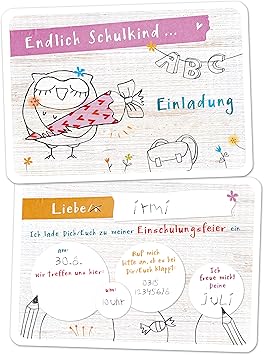 Endlich Schulkind...
ABC
Einladung
Liebe/r
irmi
Ich lade Dich/Euch zu meiner Einschulungsfeier ein
am:
30.6.
wir treffen uns hier:
um:
10 UHR
Ruf' mich
bitte an, ob es bei
Dir/Euch klappt!
0315
12345676
Ich
freue mich!
Deine
JULI